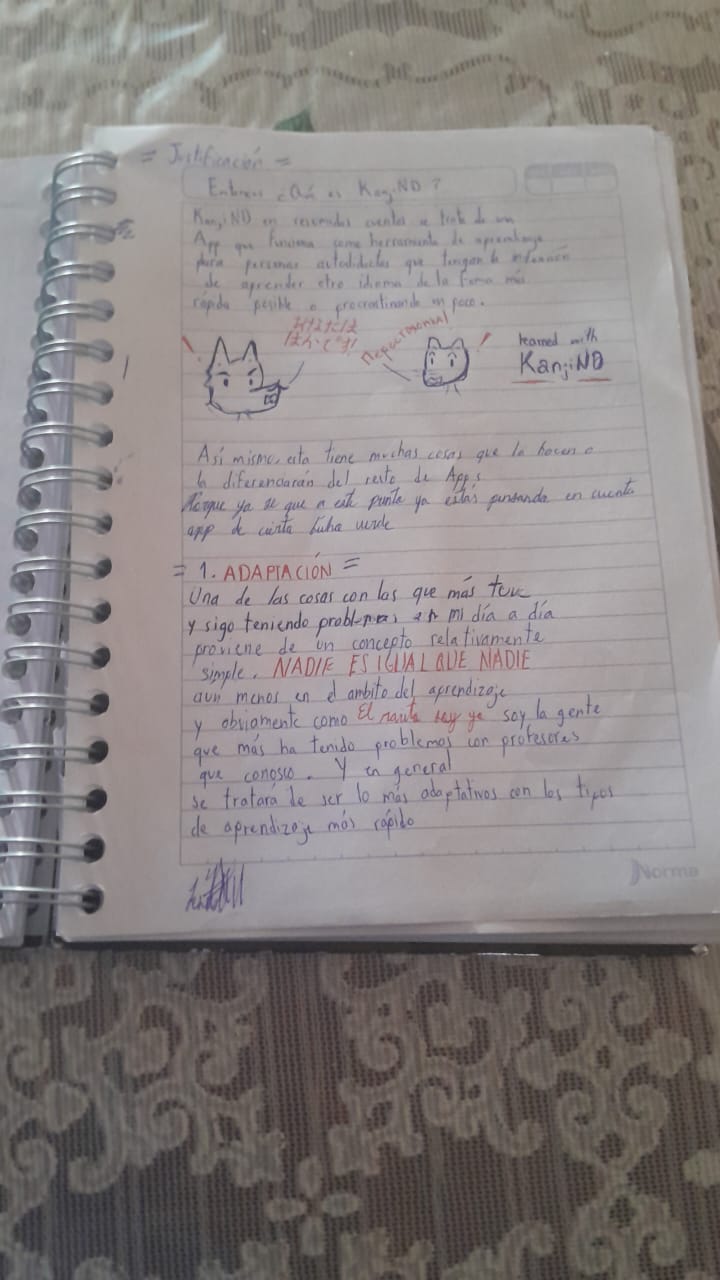 = Justificación =
Entonces ¿Qué es KanjiND?
KanjiND en resumidas cuentas se trata de un
App que funciona como herramienta de aprendizaje
para personas autodidactas que tengan la
de aprender otro idioma de la forma más
rápida posible o procrastinando un poco.
あなたは
ばかです!
learned with
KanjiND
Así mismo, esta tiene muchas cosas que la hacen o
la diferenciarán del resto de App's
Porque ya se que a este punto ya estás pensando en cuenta
app de cierta buha verde
= 1. ADAPTACIÓN =
Una de las cosas con las que más tuve
y sigo teniendo problemas en mi día a día
proviene de un concepto relativamente
simple. NADIE ES IGUAL QUE NADIE
aun menos en el ambito del aprendizaje
y obviamente como El soy yo soy la gente
que más ha tenido problemas con profesores
que conosco. Y en general
se tratará de ser lo más adaptativos con los tipos
de aprendizaje más rápido
Norma